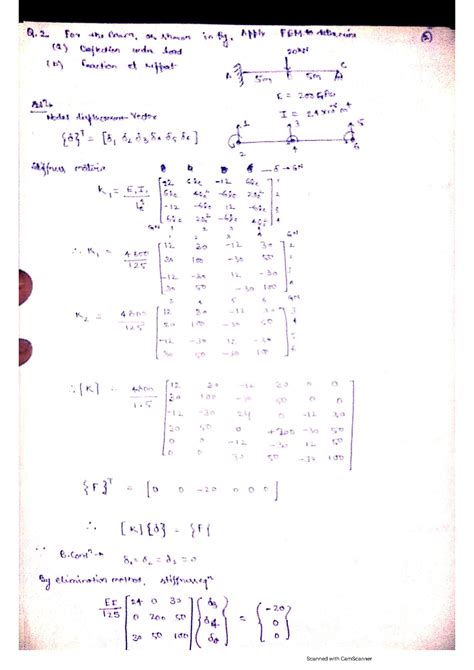 Q.2 For the beam, as shown in fig, Apply FEM to determine
(a) Deflection under load
(b) Reaction at support
20 kN
A C
5m 5m
E = 200 GPa
I = 24 x 10⁻⁶ m⁴
Nodal displacement vector
{δ}ᵀ = [δ₁ δ₂ δ₃ δ₄ δ₅ δ₆]
1 3
2 4 6
Stiffness matrix
K₁ = E₁I₁
12 6le -12 6le 1
6le 4le² -6le 2le² 2
-12 -6le 12 -6le 3
6le 2le² -6le 4le² 4
1 2 3 4
∴ K₁ = 4800/125
12 30 -12 30
30 100 -30 50 2
-12 -30 12 -30 3
30 50 -30 100 4
3 4 5 6
K₂ = 4800/125
12 30 -12 30 3
30 100 -30 50 4
-12 -30 12 -30 5
30 50 -30 100 6
∴ [K] = 4800/125
12 30 -12 30 0 0
30 100 -30 50 0 0
-12 -30 24 0 -12 30
30 50 0 200 -30 50
0 0 -12 -30 12
0 0 30 50 100
{F}ᵀ = [0 0 -20 0 0 0]
∴ [K]{δ} = {F{
∴ B. Condⁿ
δ₁ = δ₂ = δ₃ = 0
By elimination method, stiffness eqⁿ
EI/125
24 0 30 δ₃ -20
0 200 50 δ₄ = 0
30 50 100 δ₆ 0
Scanned with CamScanner